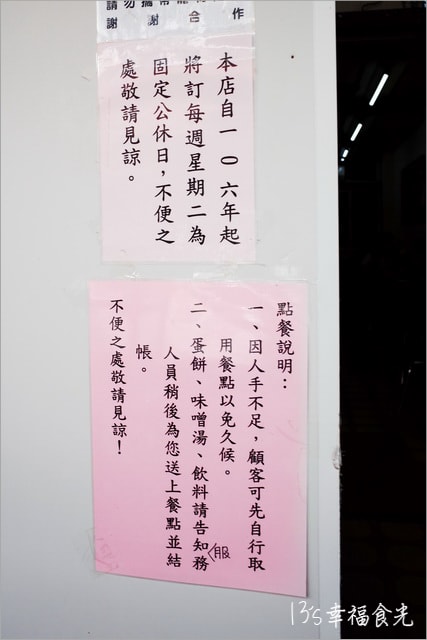 請勿攜帶
謝謝合作
本店自一０六年起
將訂每週星期二為
固定公休日，不便之
處敬請見諒。
點餐說明：
一、因人手不足，顧客可先自行取
用餐點以免久候。
二、蛋餅、味噌湯、飲料請告知服務
人員稍後為您送上餐點並結
帳。
不便之處敬請見諒！
13's幸福食光